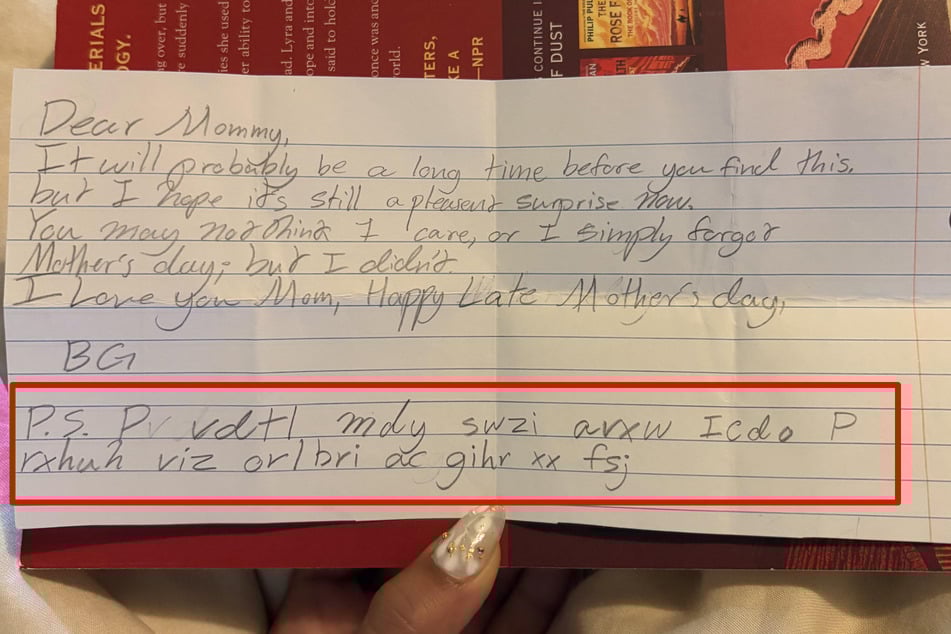 ERIALS
OGY.
ng over, but
e suddenly
ies she used
er ability to
ad. Lyra and
ope and into
said to hold
once was and
orld.
TERS,
KE A
—NPR
CONTINUE I
F DUST
PHILIP PUL
THE
ROSE F
YORK
Dear Mommy,
It will probably be a long time before you find this.
but I hope it's still a pleasent surprise now.
You may not think I care, or I simply forgot
Mother's day; but I didn't.
I Love you Mom, Happy Late Mother's day,
BG
P.S. Pv vdtl mdy swzi avxw Icdo P
rxhuh viz orlbri ac gihr xx fsj